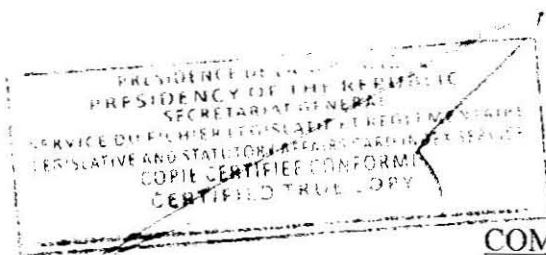 PRESIDENCE DE LA
PRESIDENCY OF THE REPUBLIC
SECRETARIAT GENERAL
SERVICE DU FICHIER LEGISLATIF ET REGLEMENTAIRE
LEGISLATIVE AND STATUTORY AFFAIRS CARD INDEX SERVICE
COPIE CERTIFIEE CONFORME
CERTIFIED TRUE COPY
COM